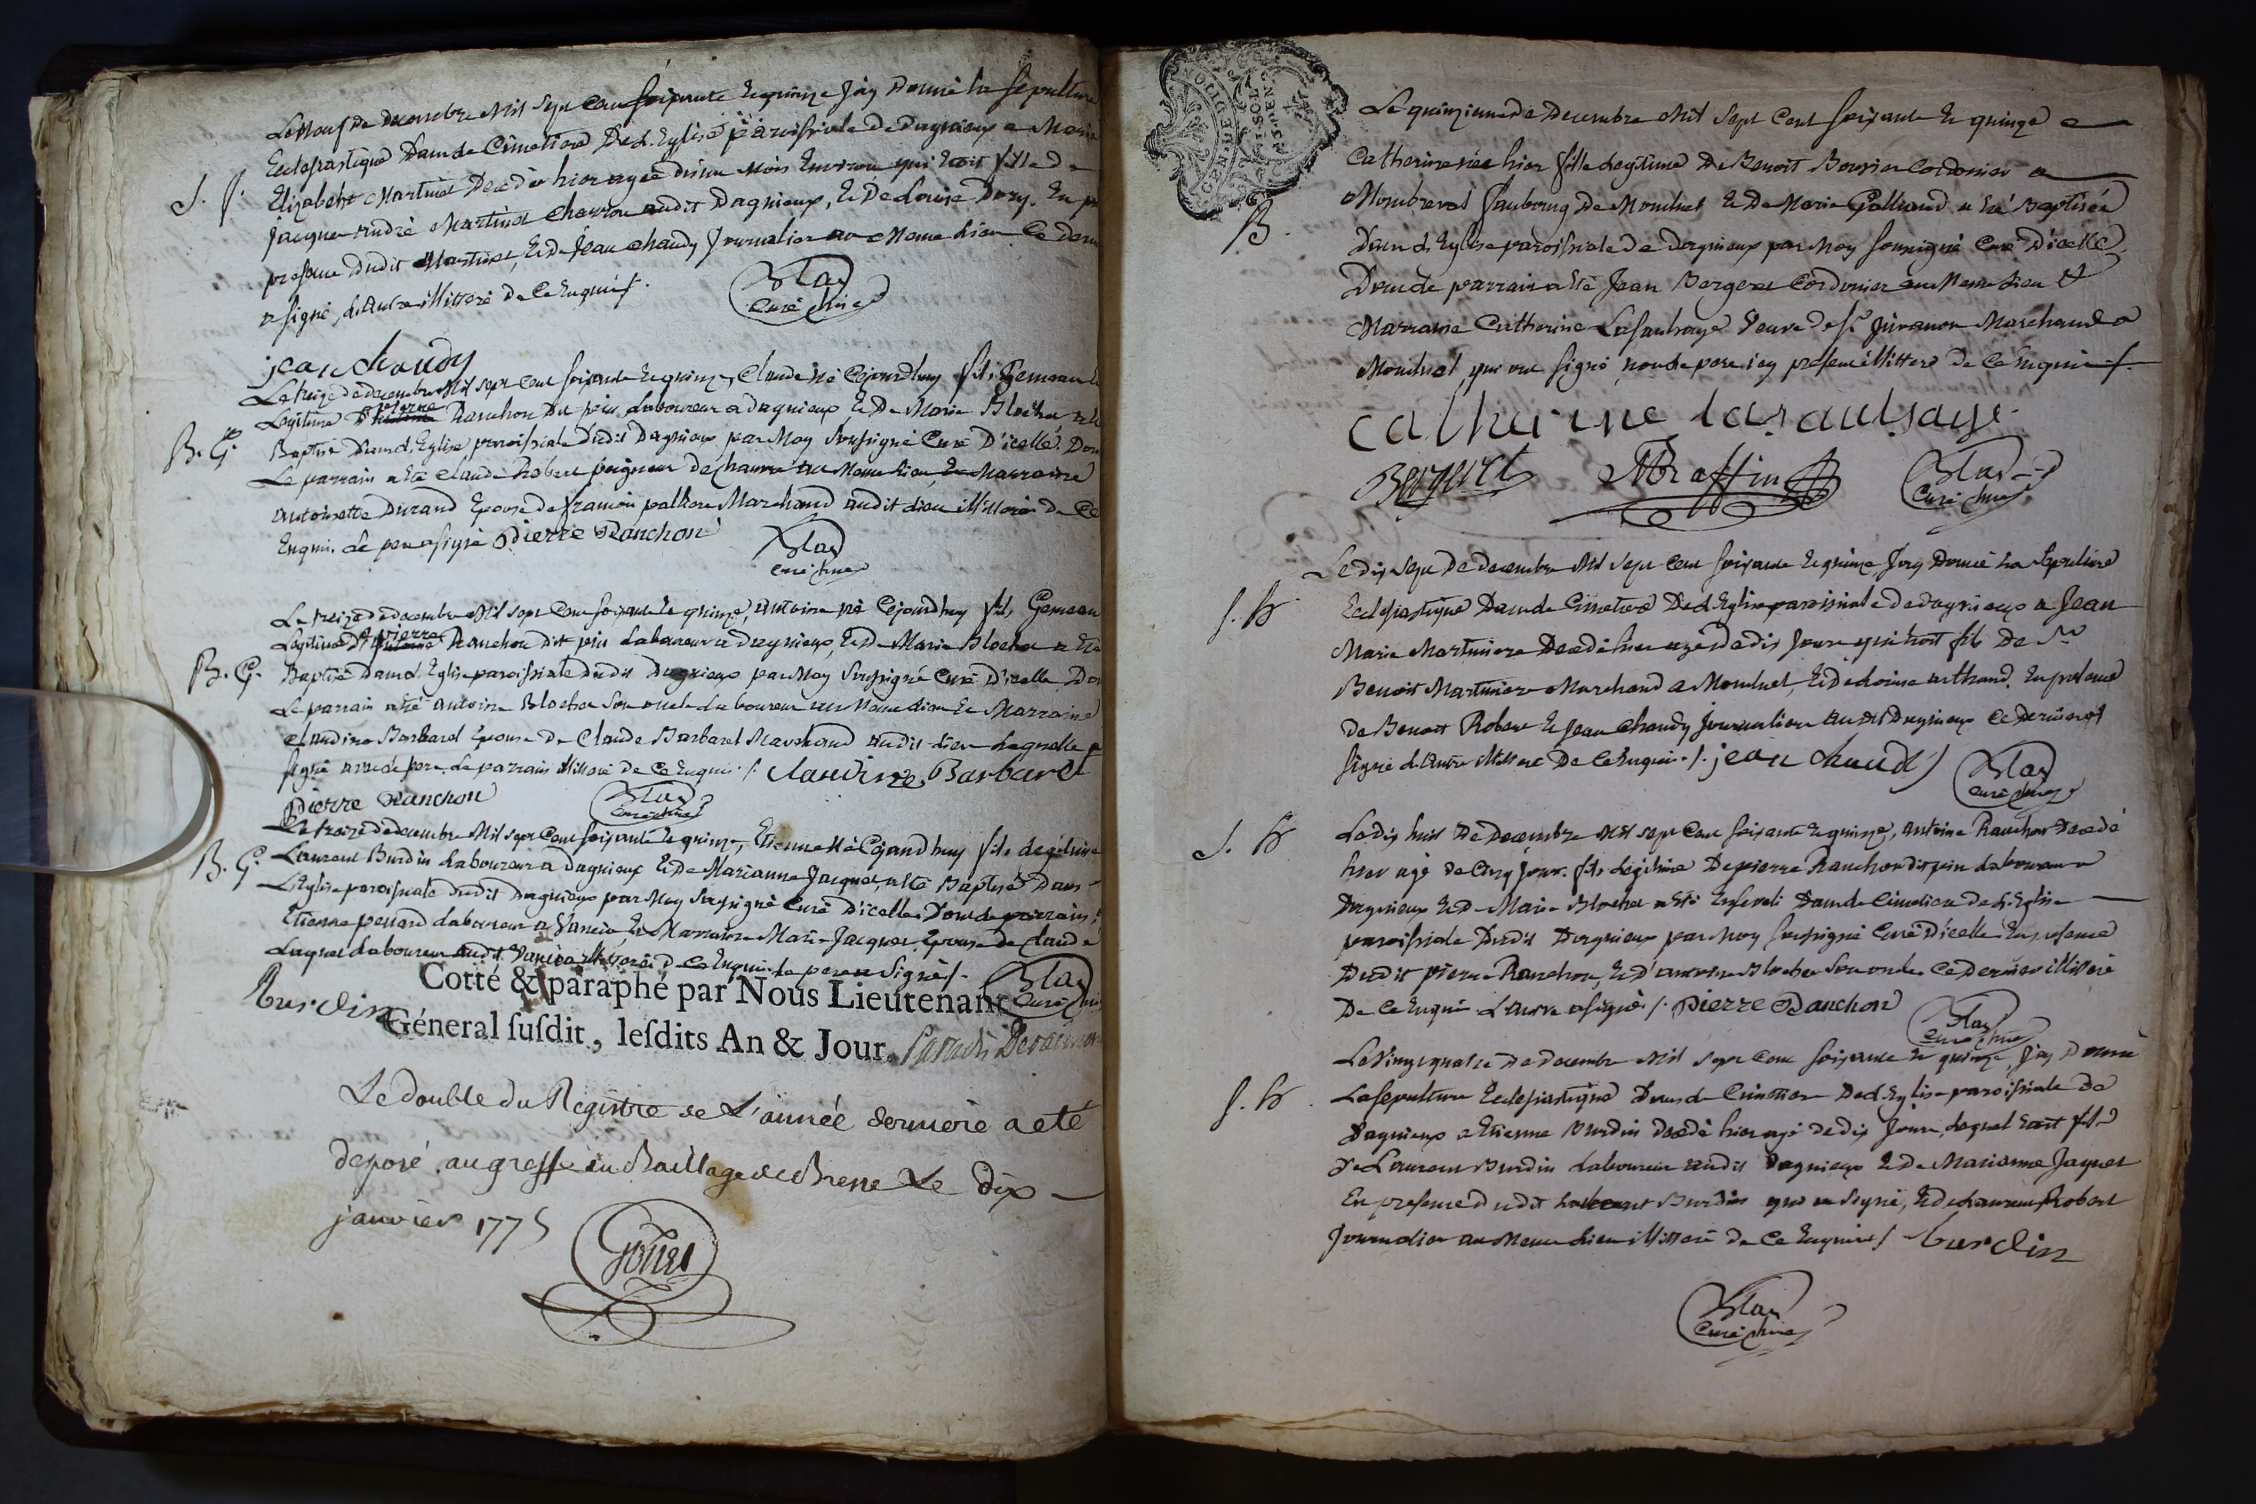 Le Neuf de decembre Mil Sept Cent soixante Et quinze J'ay Donné la sépulture
Ecclesiastique Dans le Cimetiere De d. Eglise paroissiale de Dagnieux a Marie
S. f. Elizabeht Martinet Decedée hier agée d'un Mois Environ qui Etoit fille de
Jacques André Martinet Charron audit Dagnieux, Et De Louise Dory. En
presence Dudit Martinet, Et de Jean Chaudy Journalier au Meme Lieu Ce dernier
a signé, L'autre illitteré de Ce Enquis /.
Blas
Curé
jean chaudy
Le treize de decembre Mil Sept Cent soixante Et quinze, Claude né Cejourdhuy fils Gemeau
Legitime De pierre Ranchon dit pin Laboureur a Dagnieux Et De Marie Blocher a Eté
B. G. Baptisé Dans d. Eglise paroissiale Dudit Dagnieux par Moy soussigné Curé D'icelle. Dont
Le parrain a Eté Claude Robert peigneur de chanvre au Meme Lieu, Et Marraine
Antoinette Durand Epouse de françois Marchand audit Lieu illitterés de Ce
Enquis. Le pere a signé Pierre Ranchon
Blas
Curé
Le treize de decembre Mil sept Cent soixante Et quinze, Antoine né Cejourdhuy fils Gemeau
Legitime De pierre Ranchon dit pin Laboureur a Dagnieux, Et De Marie Blocher a Eté
B. G. Baptisé Dans d. Eglise paroissiale Dudit Dagnieux par Moy soussigné Curé D'icelle Dont
Le parrain a Eté Antoine Blocher Son oncle Laboureur au Meme Lieu Et Marraine
Claudine Barbaret Epouse De Claude Barbaret Marchand audit Lieu Laquelle a
signé avec le pere, Le parrain illitteré de Ce Enquis /. Claudine Barbaret
Pierre Ranchon
Blas
Curé
Le treize de decembre Mil sept Cent soixante Et quinze, Etienne né Cejourdhuy fils Legitime
B. G. Laurent Burdin Laboureur a Dagnieux Et De Marianne Jacquet, a Eté Baptisé Dans
L'Eglise paroissiale dudit Dagnieux par Moy soussigné Curé D'icelle Dont Le parrain
Etienne Laboureur a Et Marraine Marie Jacquet Epouse de Claude
Laboureur audit illitterés de Ce Enquis Le pere a signé /.
Blas
Curé
burdin
Cotté & paraphé par Nous Lieutenant
Géneral susdit, lesdits An & Jour.
Le double du Registre de L'année derniere a eté
deposé au greffe du Bailliage de Bresse Le dix
janvier 1775
Le quinzieme de Decembre Mil Sept Cent soixante Et quinze
Catherine née hier fille Legitime De Benoit Bouvier Cordonier a
Montbreval faubourg De Montluel Et De Marie Galliand a Eté Baptisée
B. Dans d. Eglise paroissiale de Dagnieux par Moy soussigné Curé D'icelle
Dont Le parrain a Eté Jean Bergeret Cordonier au Meme Lieu Et
Marraine Catherine Lasauhaye Veuve de Sr Marchand a
Montluel, qui ont signé, non le pere icy present illitteré de Ce Enquis /.
catherine lasauhaye
Bergeret Raffin
Blas
Curé
Le dix sept De decembre Mil sept Cent soixante Et quinze J'ay Donné La sepulture
S. G. Ecclesiastique Dans le Cimetiere De d. Eglise paroissiale de Dagnieux a Jean
Marie Martiniere Decedé hier agé de dix Jours qui Etoit fils De Sr
Benoit Martiniere Marchand a Montluel, Et De Loüise Arthaud. En presence
de Benoit Robert Et Jean Chaudy Journaliers audit Dagnieux Ce Dernier a
signé L'autre illitteré De Ce Enquis /. jean chaudy
Blas
Curé
S. G. Le dix huit De Decembre Mil sept Cent soixante Et quinze, Antoine Ranchon Decedé
hier agé de Cinq Jours fils Legitime De pierre Ranchon dit pin Laboureur a
Dagnieux Et De Marie Blocher a Eté Enseveli Dans le Cimetiere de d. Eglise
paroissiale Dudit Dagnieux par Moy soussigné Curé D'icelle En presence
Dudit pierre Ranchon, Et D'antoine Blocher Son oncle Ce Dernier illitteré
De Ce Enquis L'autre a signé /. Pierre Ranchon
Blas
Curé
Le Vingt quatre De decembre Mil sept Cent soixante Et quinze, J'ay Donné
S. G. La sepulture Ecclesiastique Dans le Cimetiere De d. Eglise paroissiale de
Dagnieux a Etienne Burdin Decedé hier agé De dix Jours, Lequel Etoit fils
De Laurent Burdin Laboureur audit Dagnieux Et De Marianne Jaquet
En presence dudit Laurent Burdin qui a signé, Et de Laurent Robert
Journalier au Meme Lieu illitteré de Ce Enquis / burdin
Blas
Curé